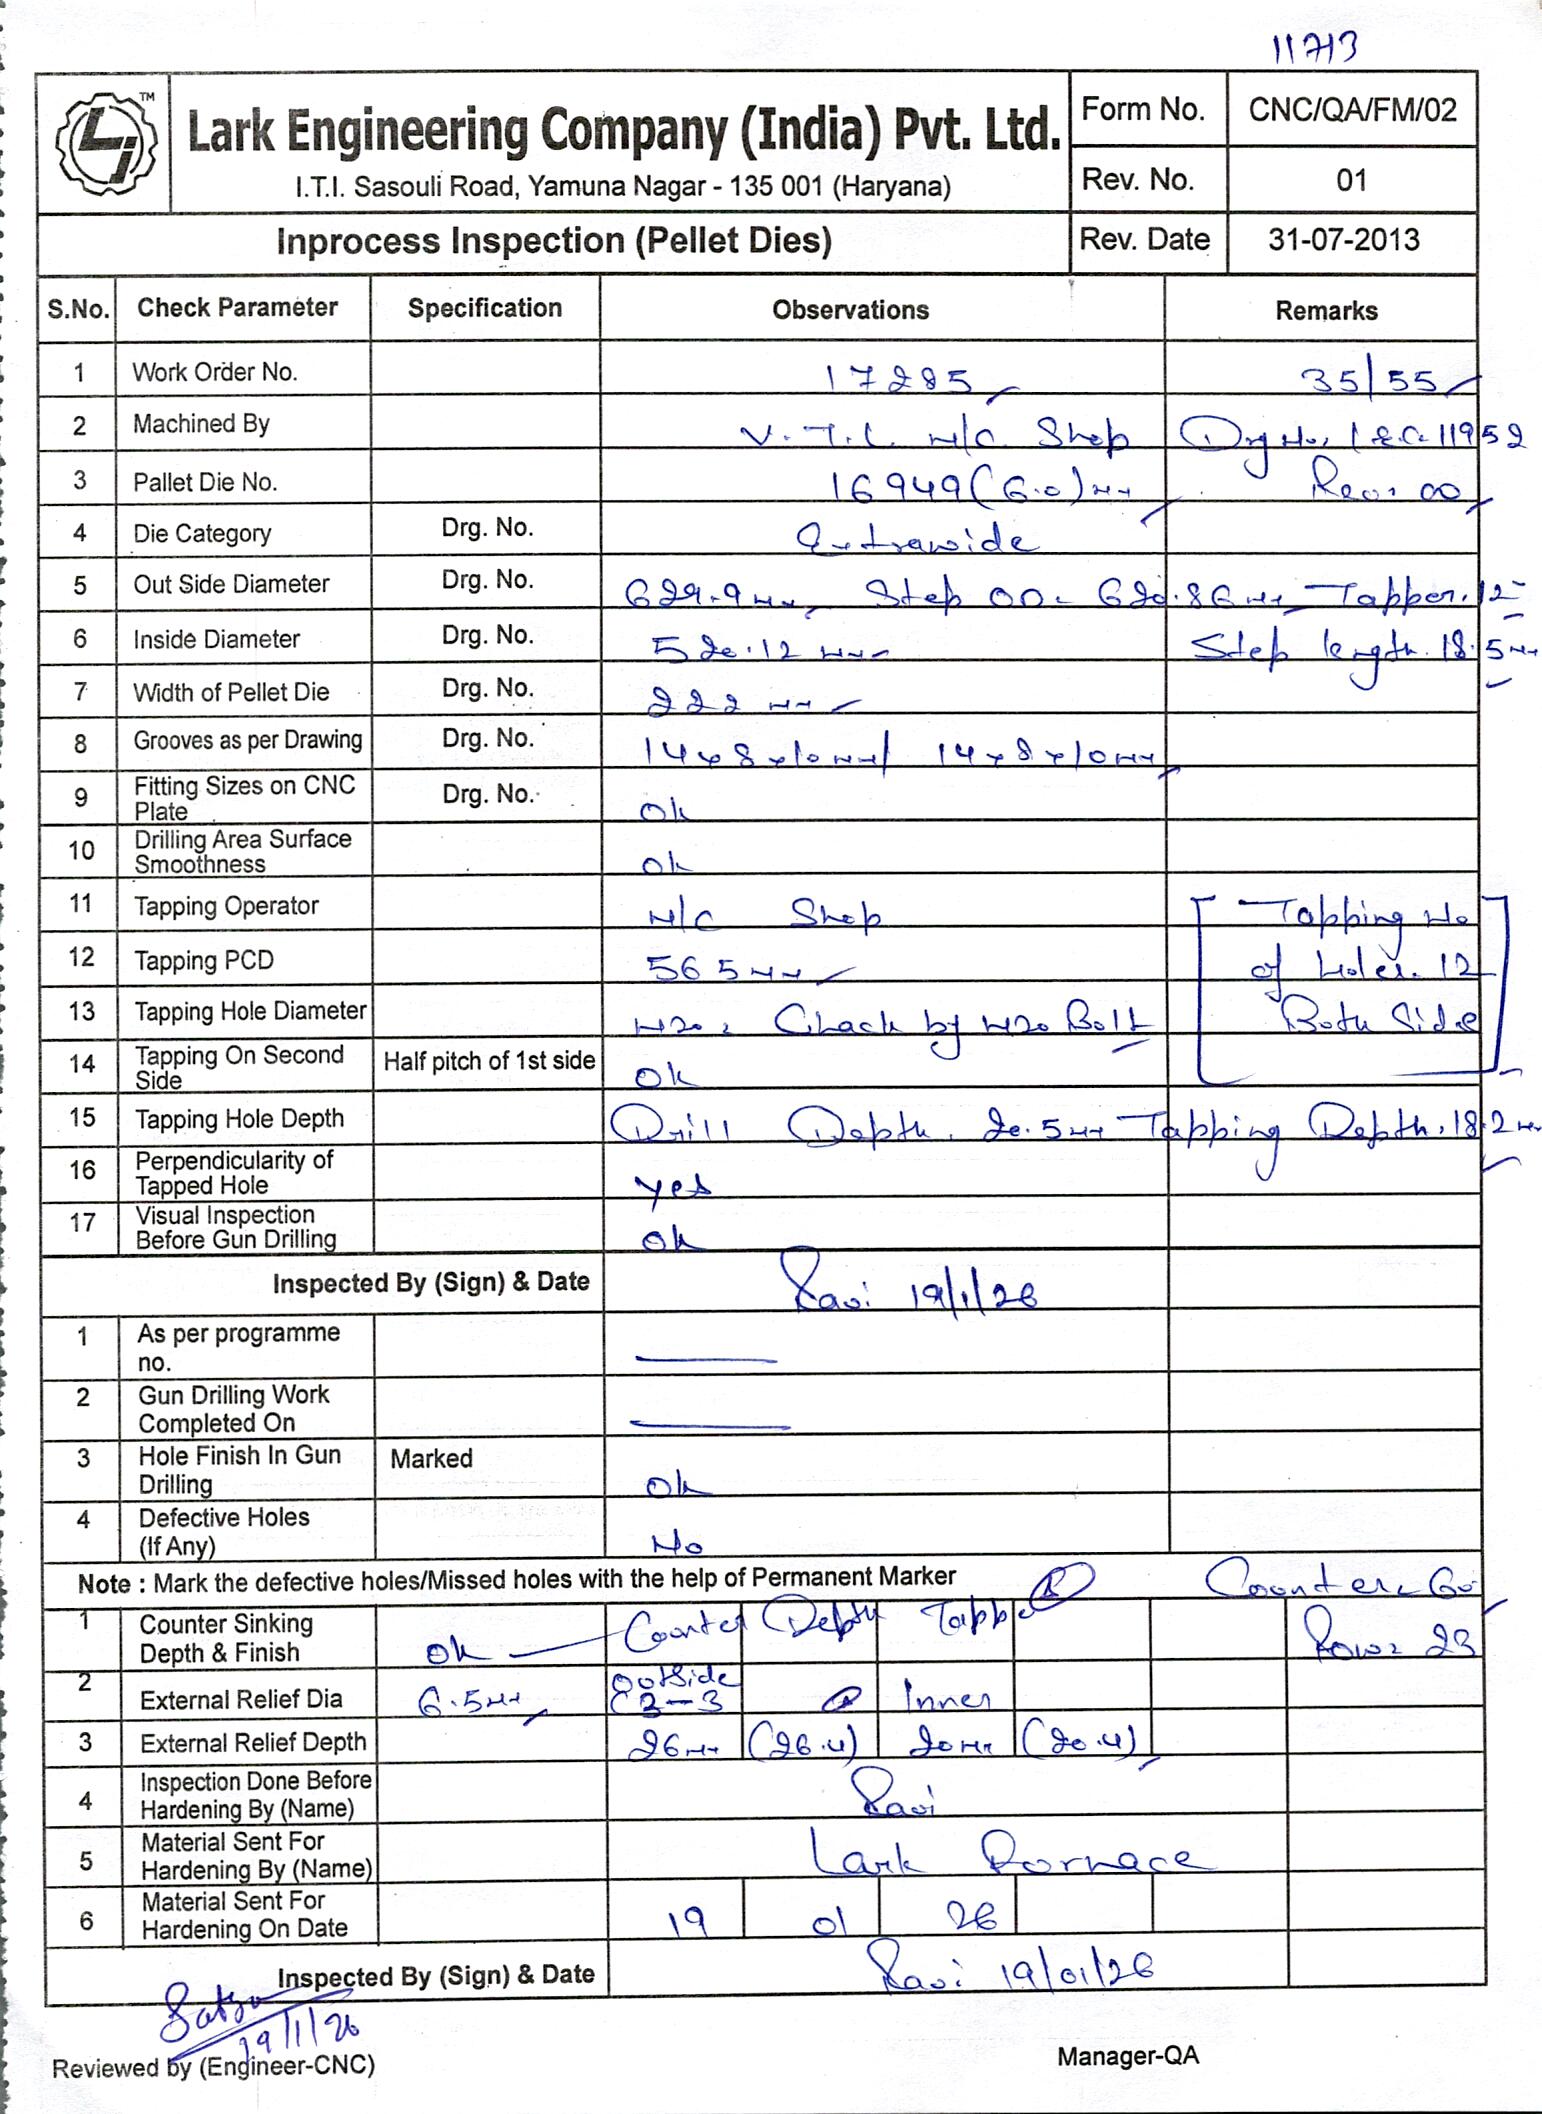 11713
TM
Lark Engineering Company (India) Pvt. Ltd.
I.T.I. Sasouli Road, Yamuna Nagar - 135 001 (Haryana)
Form No. CNC/QA/FM/02
Rev. No. 01
Inprocess Inspection (Pellet Dies) Rev. Date 31-07-2013
S.No. Check Parameter Specification Observations Remarks
1 Work Order No. 17285 35/55
2 Machined By V.T.L. M/C. Shop Drg No. 11952
3 Pallet Die No. 16949 (6.0) mm Rev. 00
4 Die Category Drg. No. Extrawide
5 Out Side Diameter Drg. No. 629.9 mm Step OD- 620.86 mm Tapper. 12
6 Inside Diameter Drg. No. 520.12 mm Step length. 18.5 mm
7 Width of Pellet Die Drg. No. 222 mm
8 Grooves as per Drawing Drg. No. 14x8x10mm/ 14x8x10mm
9 Fitting Sizes on CNC Plate Drg. No. Ok
10 Drilling Area Surface Smoothness Ok
11 Tapping Operator M/C Shop Tapping No
12 Tapping PCD 565 mm of holes. 12
13 Tapping Hole Diameter M20, Chack by M20 Bolt Both Side
14 Tapping On Second Side Half pitch of 1st side Ok
15 Tapping Hole Depth Drill Depth. 20.5mm Tapping Depth. 18.2mm
16 Perpendicularity of Tapped Hole yes
17 Visual Inspection Before Gun Drilling Ok
Inspected By (Sign) & Date Ravi 19/1/26
1 As per programme no.
2 Gun Drilling Work Completed On
3 Hole Finish In Gun Drilling Marked Ok
4 Defective Holes (If Any) No
Note : Mark the defective holes/Missed holes with the help of Permanent Marker Counter. 60
1 Counter Sinking Depth & Finish Ok Counter Depth Tapper Row. 23
2 External Relief Dia 6.5mm Outside 3-3 Inner
3 External Relief Depth 26mm (26.4) 20mm (20.4)
4 Inspection Done Before Hardening By (Name) Ravi
5 Material Sent For Hardening By (Name) Lark Fornace
6 Material Sent For Hardening On Date 19 01 26
Inspected By (Sign) & Date Ravi 19/01/26
19/1/26
Reviewed by (Engineer-CNC) Manager-QA